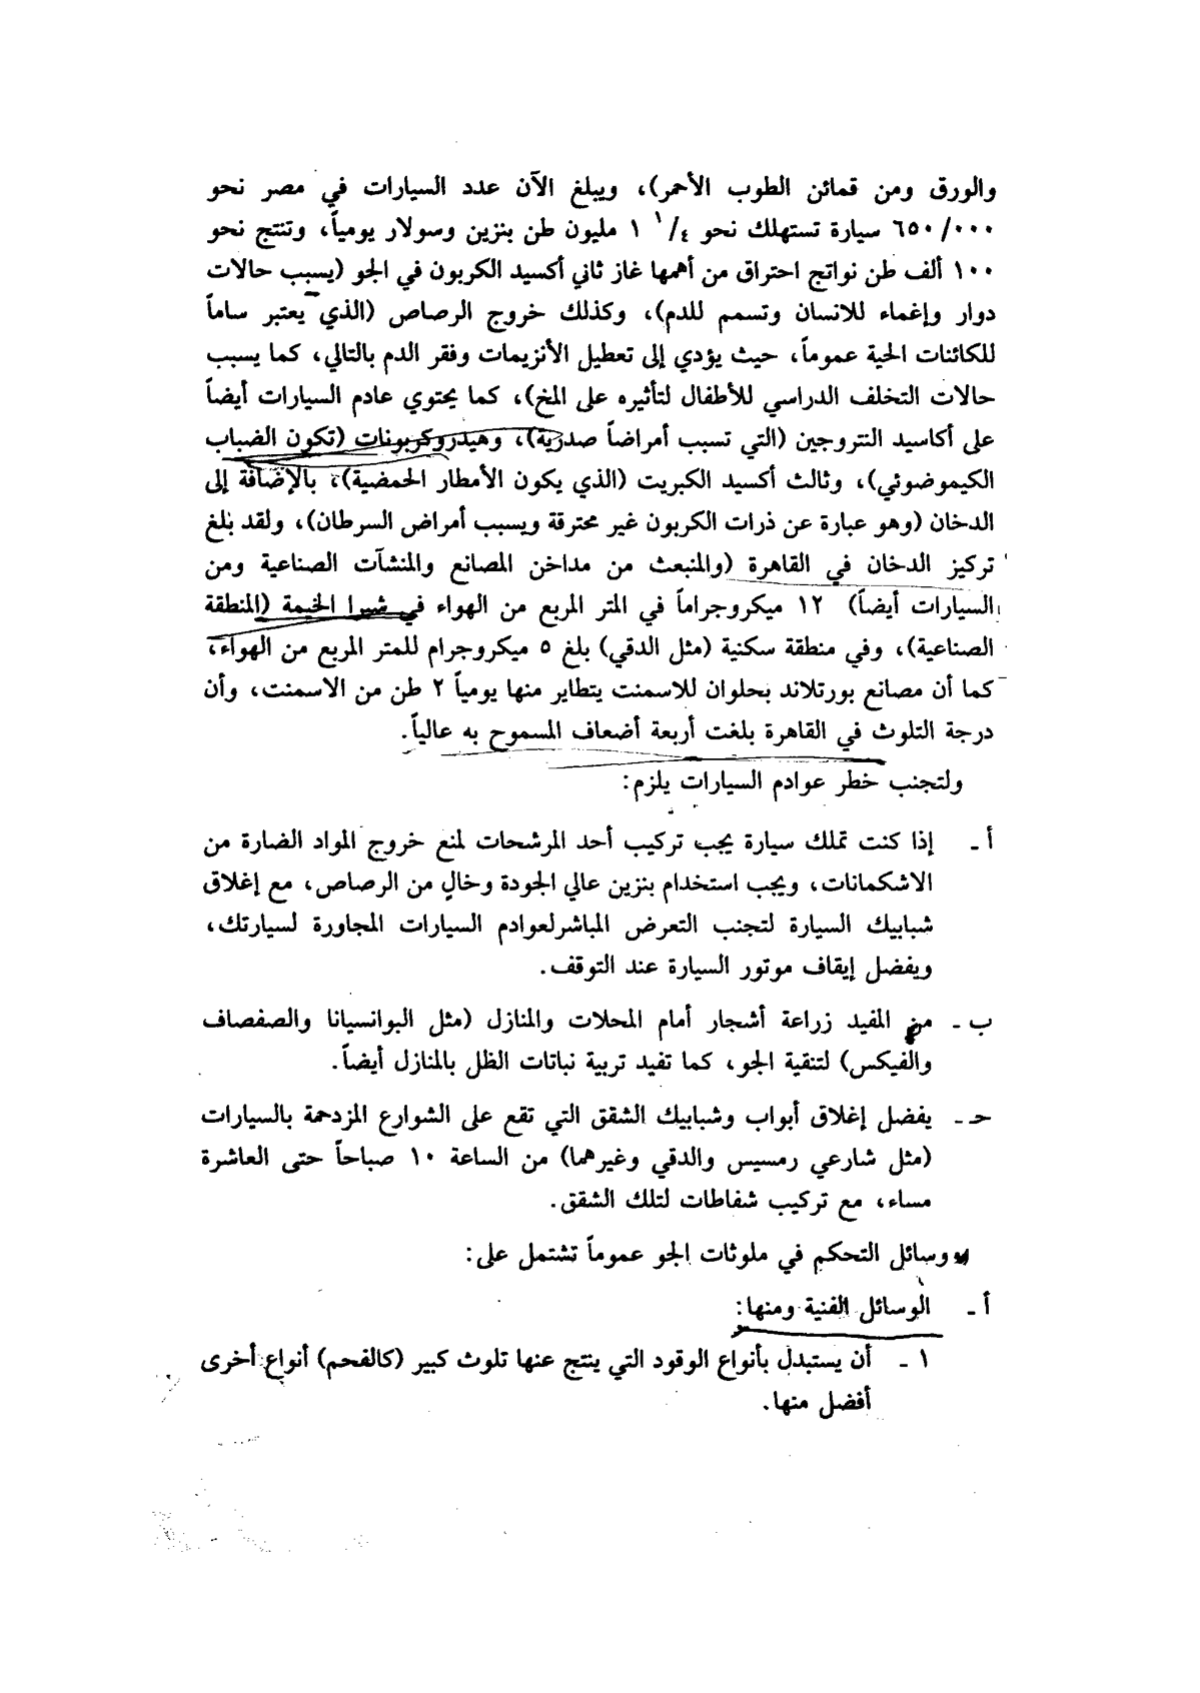 والورق ومن قمائن الطوب الأحمر)، ويبلغ الآن عدد السيارات في مصر نحو
٦٥٠/٠٠٠ سيارة تستهلك نحو ١ ١/٤ مليون طن بنزين وسولار يومياً، وتنتج نحو
١٠٠ ألف طن نواتج احتراق من أهمها غاز ثاني أكسيد الكربون في الجو (يسبب حالات
دوار وإغماء للانسان وتسمم للدم)، وكذلك خروج الرصاص (الذي يعتبر ساماً
للكائنات الحية عموماً، حيث يؤدي إلى تعطيل الأنزيمات وفقر الدم بالتالي، كما يسبب
حالات التخلف الدراسي للأطفال لتأثيره على المخ)، كما يحتوي عادم السيارات أيضاً
على أكاسيد النتروجين (التي تسبب أمراضاً صدرية)، وهيدروكربونات (تكون الضباب
الكيموضوئي)، وثالث أكسيد الكبريت (الذي يكون الأمطار الحمضية)، بالإضافة إلى
الدخان (وهو عبارة عن ذرات الكربون غير محترقة ويسبب أمراض السرطان)، ولقد بلغ
تركيز الدخان في القاهرة (والمنبعث من مداخن المصانع والمنشآت الصناعية ومن
السيارات أيضاً) ١٢ ميكروجراماً في المتر المربع من الهواء في شبرا الخيمة (المنطقة
الصناعية)، وفي منطقة سكنية (مثل الدقي) بلغ ٥ ميكروجرام للمتر المربع من الهواء،
كما أن مصانع بورتلاند بحلوان للاسمنت يتطاير منها يومياً ٢ طن من الاسمنت، وأن
درجة التلوث في القاهرة بلغت أربعة أضعاف المسموح به عالياً.
ولتجنب خطر عوادم السيارات يلزم:
أ ـ إذا كنت تملك سيارة يجب تركيب أحد المرشحات لمنع خروج المواد الضارة من
الاشكمانات، ويجب استخدام بنزين عالي الجودة وخالٍ من الرصاص، مع إغلاق
شبابيك السيارة لتجنب التعرض المباشرلعوادم السيارات المجاورة لسيارتك،
ويفضل إيقاف موتور السيارة عند التوقف.
ب ـ من المفيد زراعة أشجار أمام المحلات والمنازل (مثل البوانسيانا والصفصاف
والفيكس) لتنقية الجو، كما تفيد تربية نباتات الظل بالمنازل أيضاً.
حـ ـ يفضل إغلاق أبواب وشبابيك الشقق التي تقع على الشوارع المزدحمة بالسيارات
(مثل شارعي رمسيس والدقي وغيرهما) من الساعة ١٠ صباحاً حتى العاشرة
مساء، مع تركيب شفاطات لتلك الشقق.
وسائل التحكم في ملوثات الجو عموماً تشتمل على:
أ ـ الوسائل الفنية ومنها:
١ ـ أن يستبدل بأنواع الوقود التي ينتج عنها تلوث كبير (كالفحم) أنواع أخرى
أفضل منها.